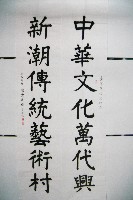 中華文化萬代興
新潮傳統藝術村